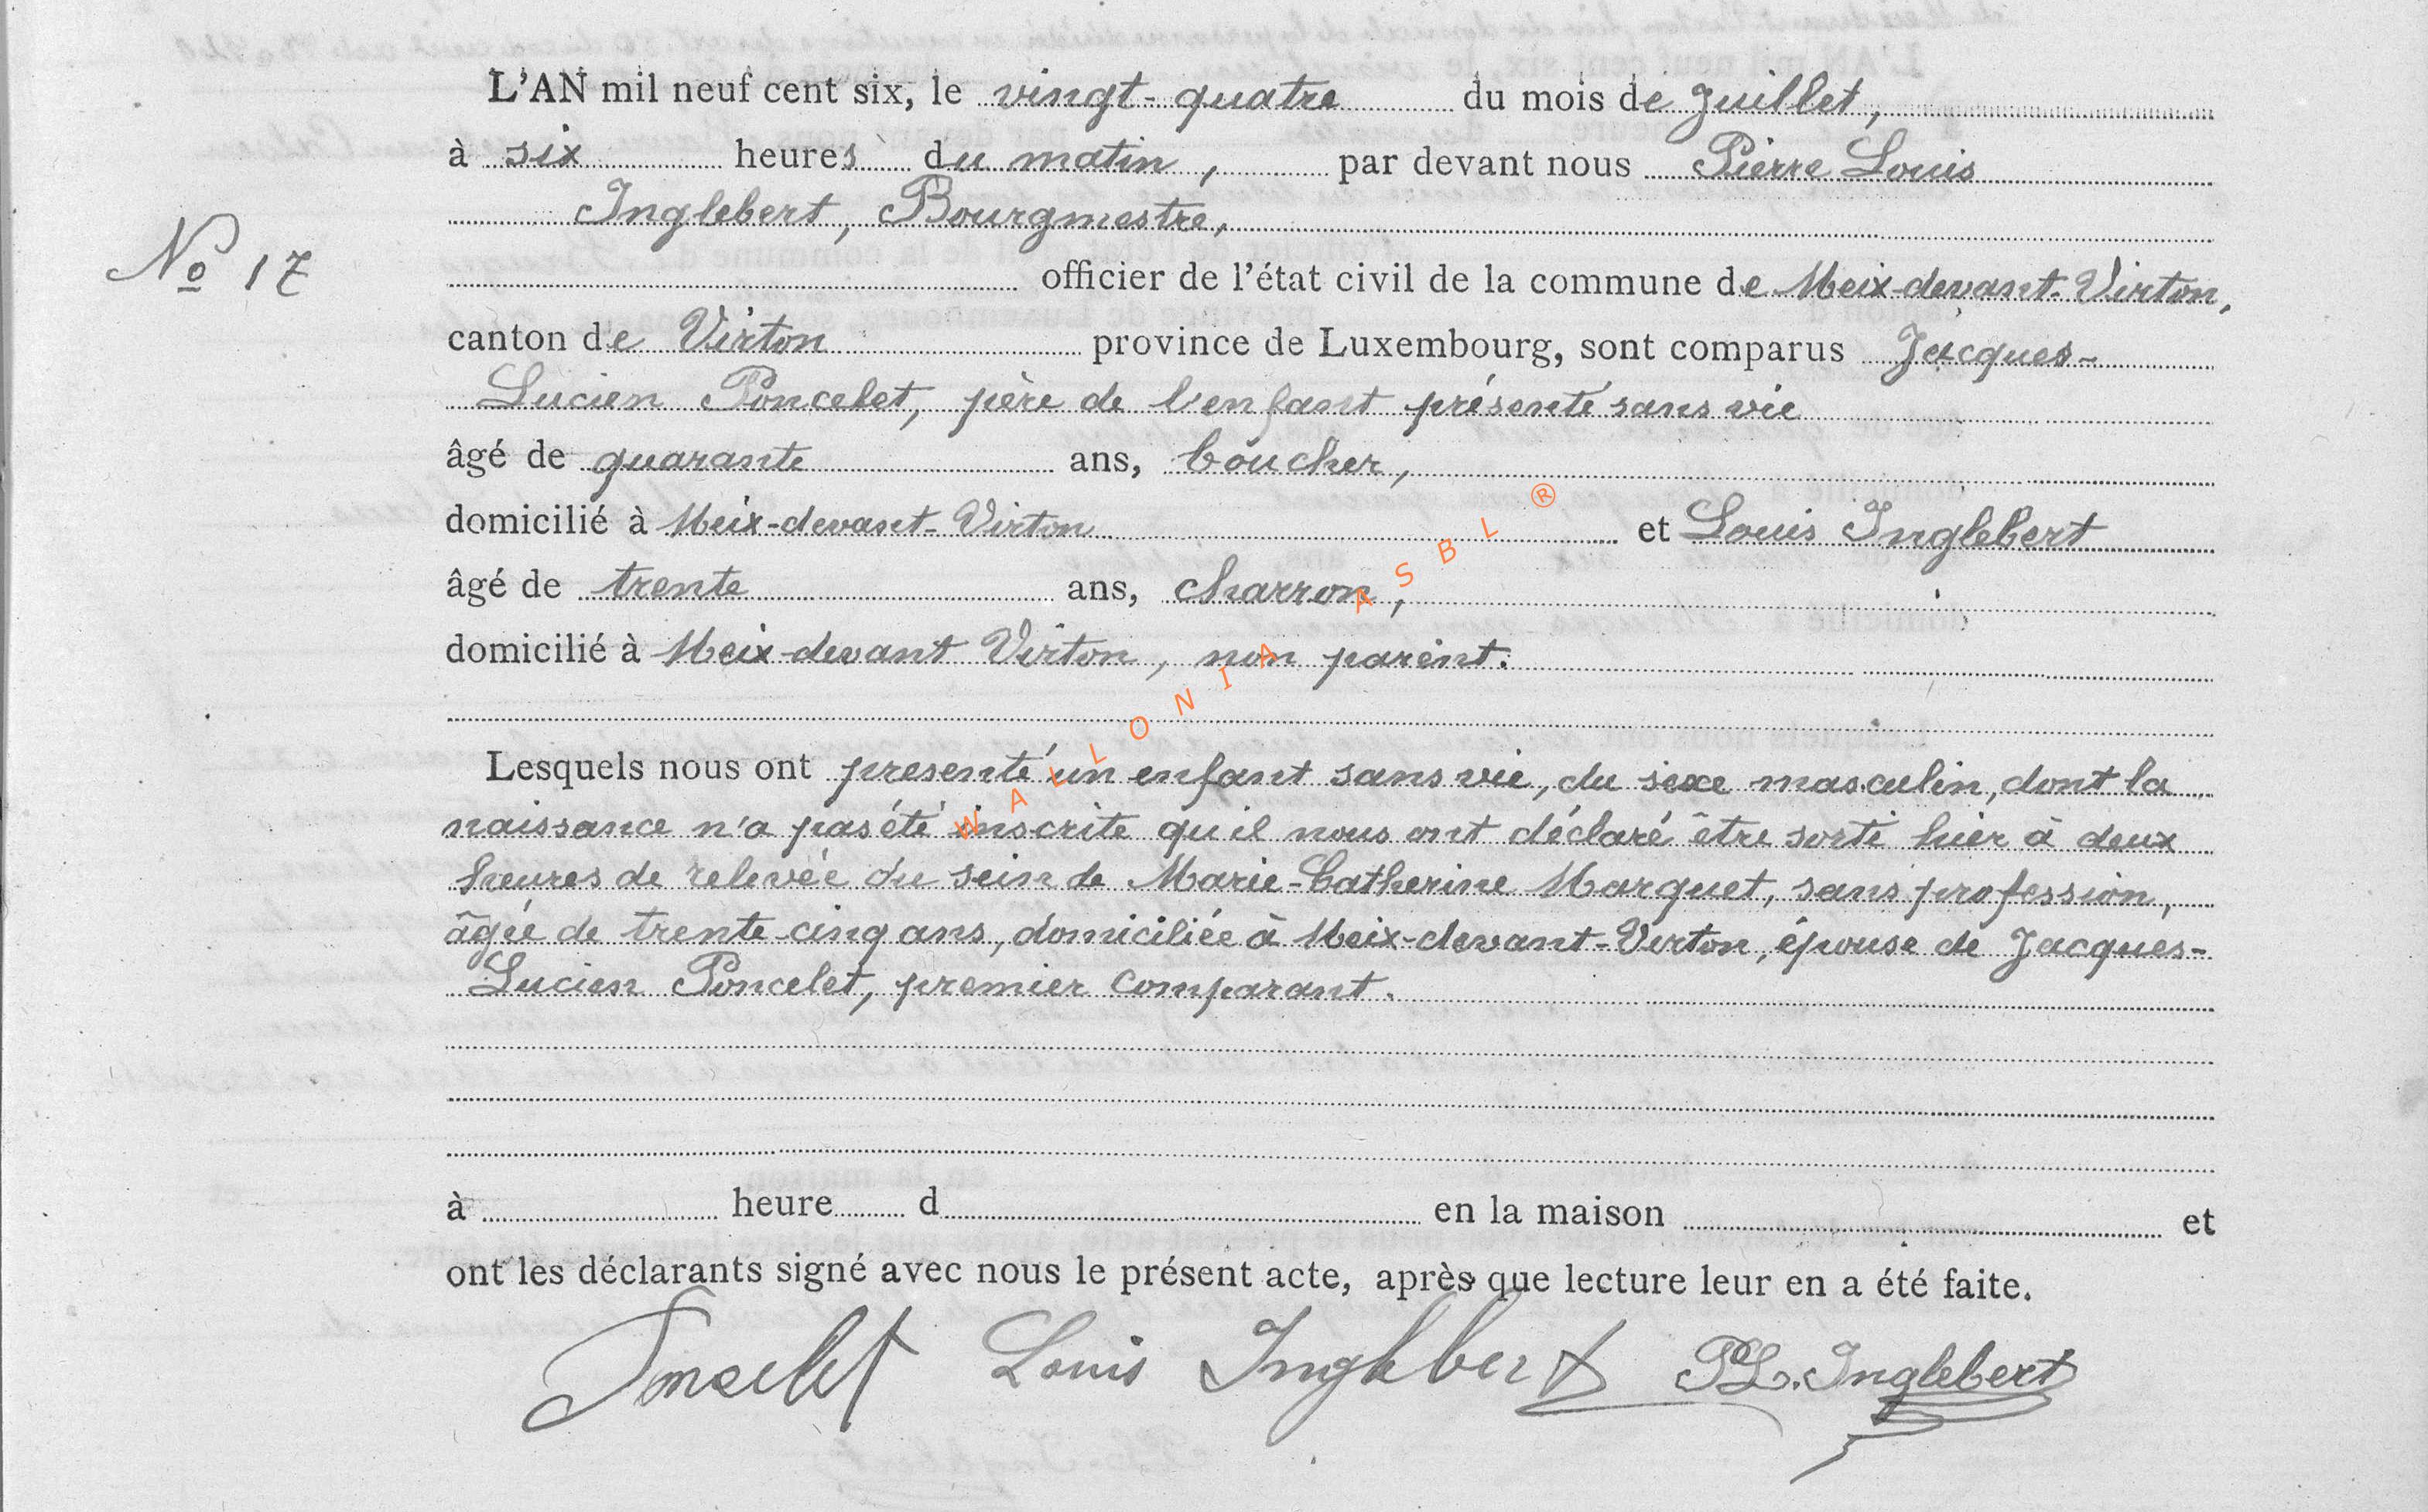 L'AN mil neuf cent six, le vingt-quatre du mois de Juillet,
à six heures du matin, par devant nous Pierre Louis
Inglebert, Bourgmestre,
No 17
officier de l'état civil de la commune de Meix-devant-Virton,
canton de Virton province de Luxembourg, sont comparus Jacques-
Lucien Poncelet, père de l'enfant présenté sans vie
âgé de quarante ans, boucher,
domicilié à Meix-devant-Virton et Louis Inglebert
âgé de trente ans, charron,
domicilié à Meix-devant Virton, non parent.
Lesquels nous ont présenté un enfant sans vie, du sexe masculin, dont la
naissance n'a pas été inscrite qu'il nous ont déclaré être sorti hier à deux
heures de relevée du sein de Marie-Catherine Marquet, sans profession,
âgée de trente-cinq ans, domiciliée à Meix-devant-Virton, épouse de Jacques-
Lucien Poncelet, premier comparant.
à heure d en la maison et
ont les déclarants signé avec nous le présent acte, après que lecture leur en a été faite.
Poncelet Louis Inglebert PL. Inglebert
WALLONIA ASBL ®